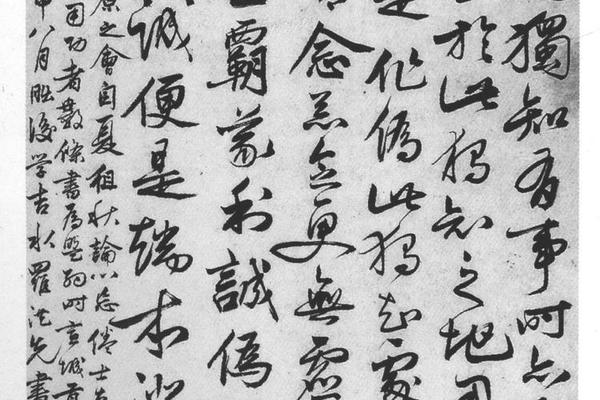 獨知有事時亦
於此獨知之地用
是作偽此獨知處
念惡念更無虛
霸義利誠偽
誠便是端本澄
原之會自夏徂秋論心忘倦士
用功者數條書為別時
申八月朏後學吉水羅洪先書